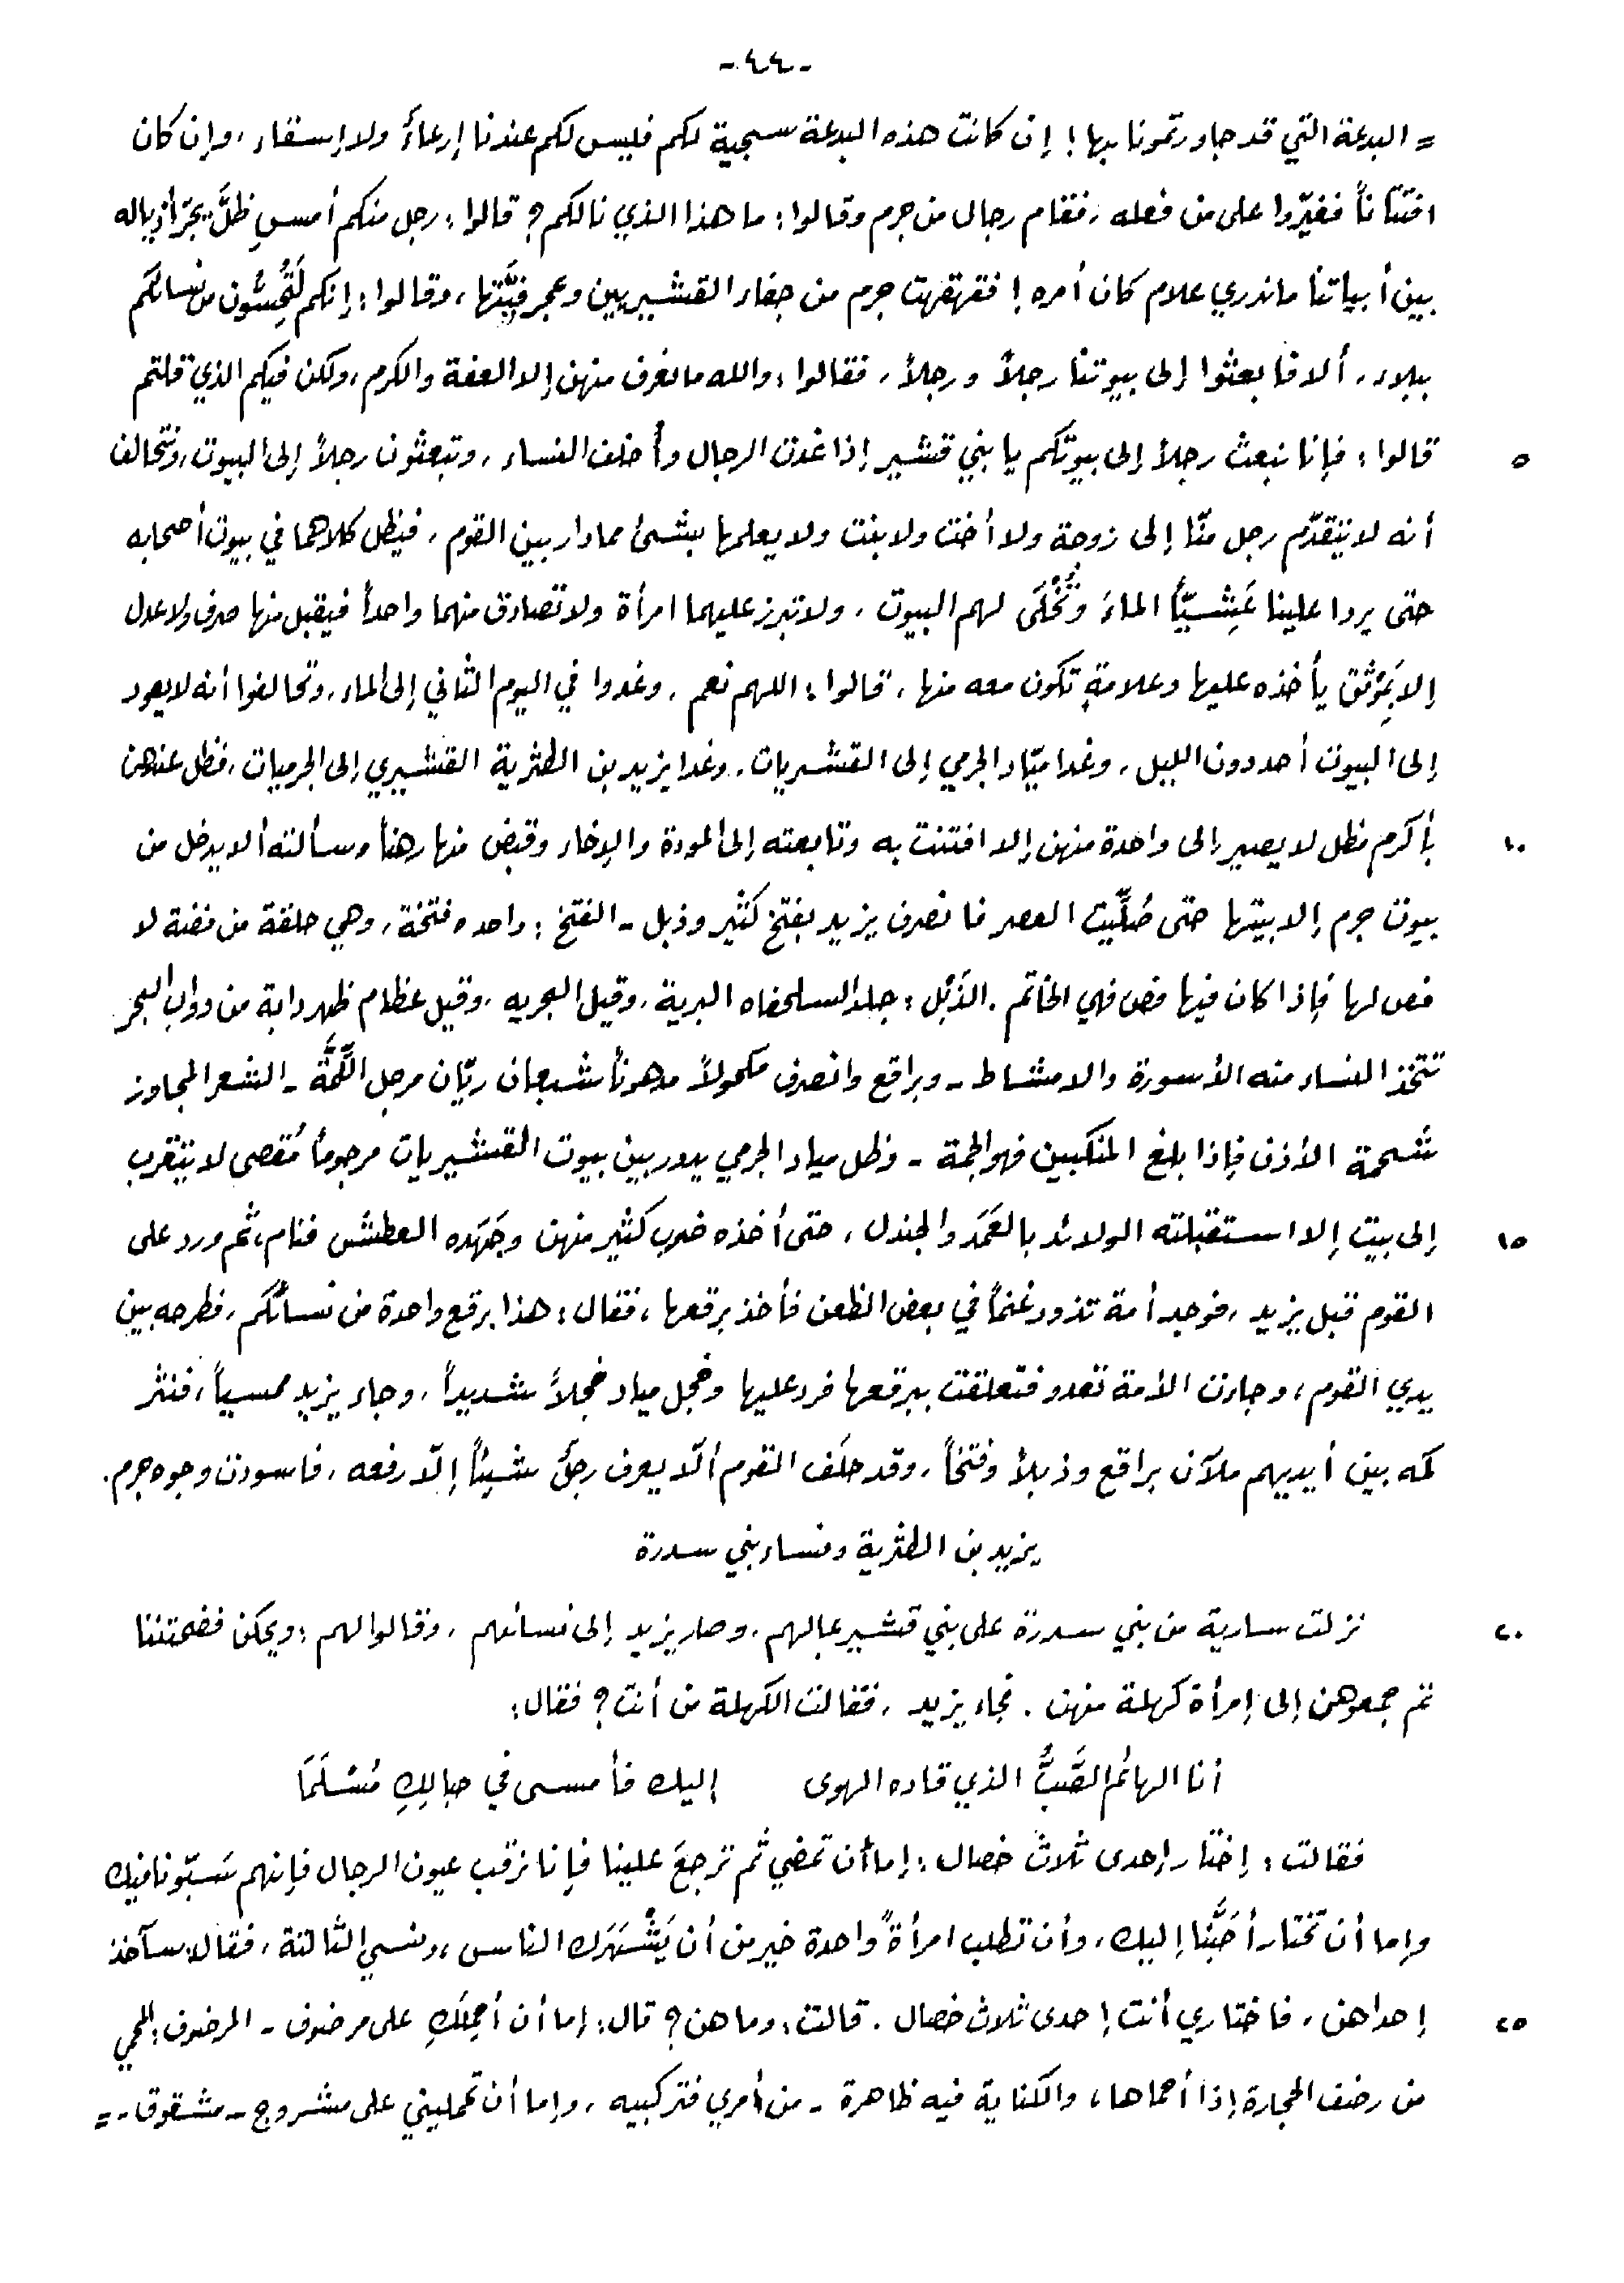 -٤٤-
= البدعة التي قد جاورتمونا بها! إن كانت هذه البدعة سجية لكم فليس لكم عندنا إرعاءً ولا إسقاء، وإن كان
افتتاناً فغيّروا على من فعله، فقام رجال من جرم وقالوا: ما هذا الذي نالكم؟ قالوا: رجل منكم أمسِ ظلَّ يجرّ أذياله
بين أبياتنا ما ندري علام كان أمره! فقهقهت جرم من جفاء القشيريين وعجرفيَّتها، وقالوا: إنكم لَتُحِسُّون من نسائكم
ببلاء، ألا فابعثوا إلى بيوتنا رجلاً ورجلاً، فقالوا: والله ما نعرف منهن إلا العفة والكرم، ولكن فيكم الذي قلتم
٥ قالوا: فإنا نبعث رجلاً إلى بيوتكم يا بني قشير إذا غدت الرجال وأخلف النساء، وتبعثون رجلاً إلى البيوت، ونتحالف
أنه لا يتقدّم رجل منّا إلى زوجة ولا أخت ولا بنت ولا يعلمها بشئ مما دار بين القوم، فيظل كلاهما في بيوت أصحابه
حتى يردا علينا عَشِيّاً الماءَ وتُخْلَى لهم البيوت، ولا تبرز عليهما امرأة ولا تصادق منهما واحداً فيقبل منها صرف ولا عدل
إلا بمَوْثق يأخذه عليها وعلامةٍ تكون معه منها، قالوا: اللهم نعم، وغدوا في اليوم الثاني إلى الماء، وتحالفوا أنه لا يعود
إلى البيوت أحد دون الليل، وغدا ميّاد الجرمي إلى القشيريات، وغدا يزيد بن الطثرية القشيري إلى الجرميات، فظل عندهن
١٠ بأكرم مظل لا يصير إلى واحدة منهن إلا افتتنت به وتابعته إلى المودة والإخاء وقبض منها رهناً وسألته ألا يدخل من
بيوت جرم إلا بيتها حتى صُلِّيت العصر فانصرف يزيد بفتخ كثير وذبل - الفتخ: واحده فتخة، وهي حلقة من فضة لا
فص لها فإذا كان فيها فص فهي الخاتم. الذَبْل: جلد السلحفاه البرية، وقيل البحريه، وقيل عظام ظهر دابة من دواب البحر
تتخذ النساء منه الأسورة والامشاط - وبراقع وانصرف مكحولاً مدهوناً شبعان ريّان مرجل اللِّمَّة - الشعر المجاوز
شحمة الأذن فإذا بلغ المنكبين فهو الجمة - وظل مياد الجرمي يدور بين بيوت القشيريات مرجوماً مُقصى لا يتقرب
١٥ إلى بيت إلا استقبلته الولائد بالعَمَد والجندل، حتى أخذه ضرب كثير منهن وجَهَده العطش فنام، ثم ورد على
القوم قبل يزيد، فوجد أمة تذود غنماً في بعض الظعن فأخذ برقعها، فقال: هذا برقع واحدة من نسائكم، فطرحه بين
يدي القوم، وجاءت الأمة تعدو فتعلقت ببرقعها فرد عليها وخجل مياد خجلاً شديداً، وجاء يزيد ممسياً، فنثر
كمه بين أيديهم ملآن براقع وذبلاً وفتخاً، وقد حلف القوم ألّا يعرف رجلٌ شيئاً إلّا رفعه، فاسودت وجوه جرم.
يزيد بن الطثرية ونساء بني سدرة
٢٠ نزلت سارية من بني سدرة على بني قشير عالهم، وصار يزيد إلى نسائهم، وقالوا لهم: ويحكن فضحتننا
ثم جمعوهن إلى إمرأة كهلة منهن. فجاء يزيد، فقالت الكهلة من أنت؟ فقال:
أنا الهائم الصَّبُّ الذي قاده الهوى إليك فأمسى في حبالِكِ مُسْلَمَا
فقالت: إختار إحدى ثلاث خصال: إما أن تمضي ثم ترجعَ علينا فإنا نرقب عيون الرجال فإنهم سَبّونا فيك
وإما أن تختار أحَبَّنا إليك، وأن تطلب امرأةً واحدة خير من أن يَشْهَرَك الناس، ونسي الثالثة، فقال: سآخذ
٢٥ إحداهن، فاختاري أنت إحدى ثلاث خصال. قالت: وما هن؟ قال: إما أن أحمِلَكِ على مرضوف - المرضوف: المحمي
من رضف الحجارة إذا أحماها، والكناية فيه ظاهرة - من أمري فتركبيه، وإما أن تحمليني على مشروج - مشقوق - =